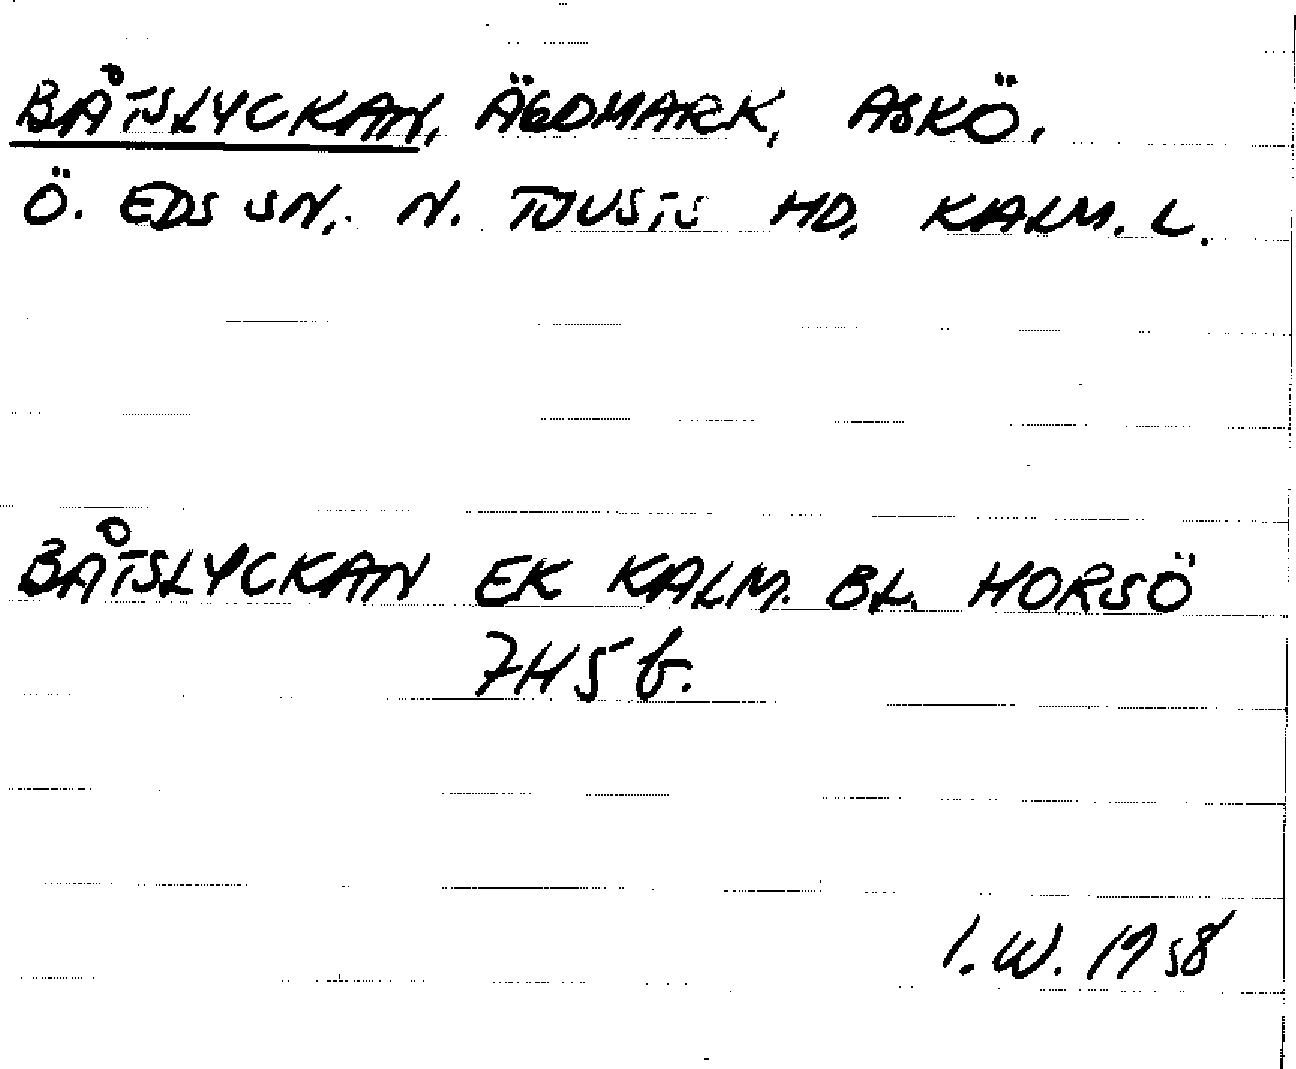 BÅTSLYCKAN, ÄGOMARK, ASKÖ.
Ö. EDS SN, N. TJUSTS HD, KALM. L.
BÅTSLYCKAN EK KALM. BL. HORSÖ
7H5b.
I.W. 1958